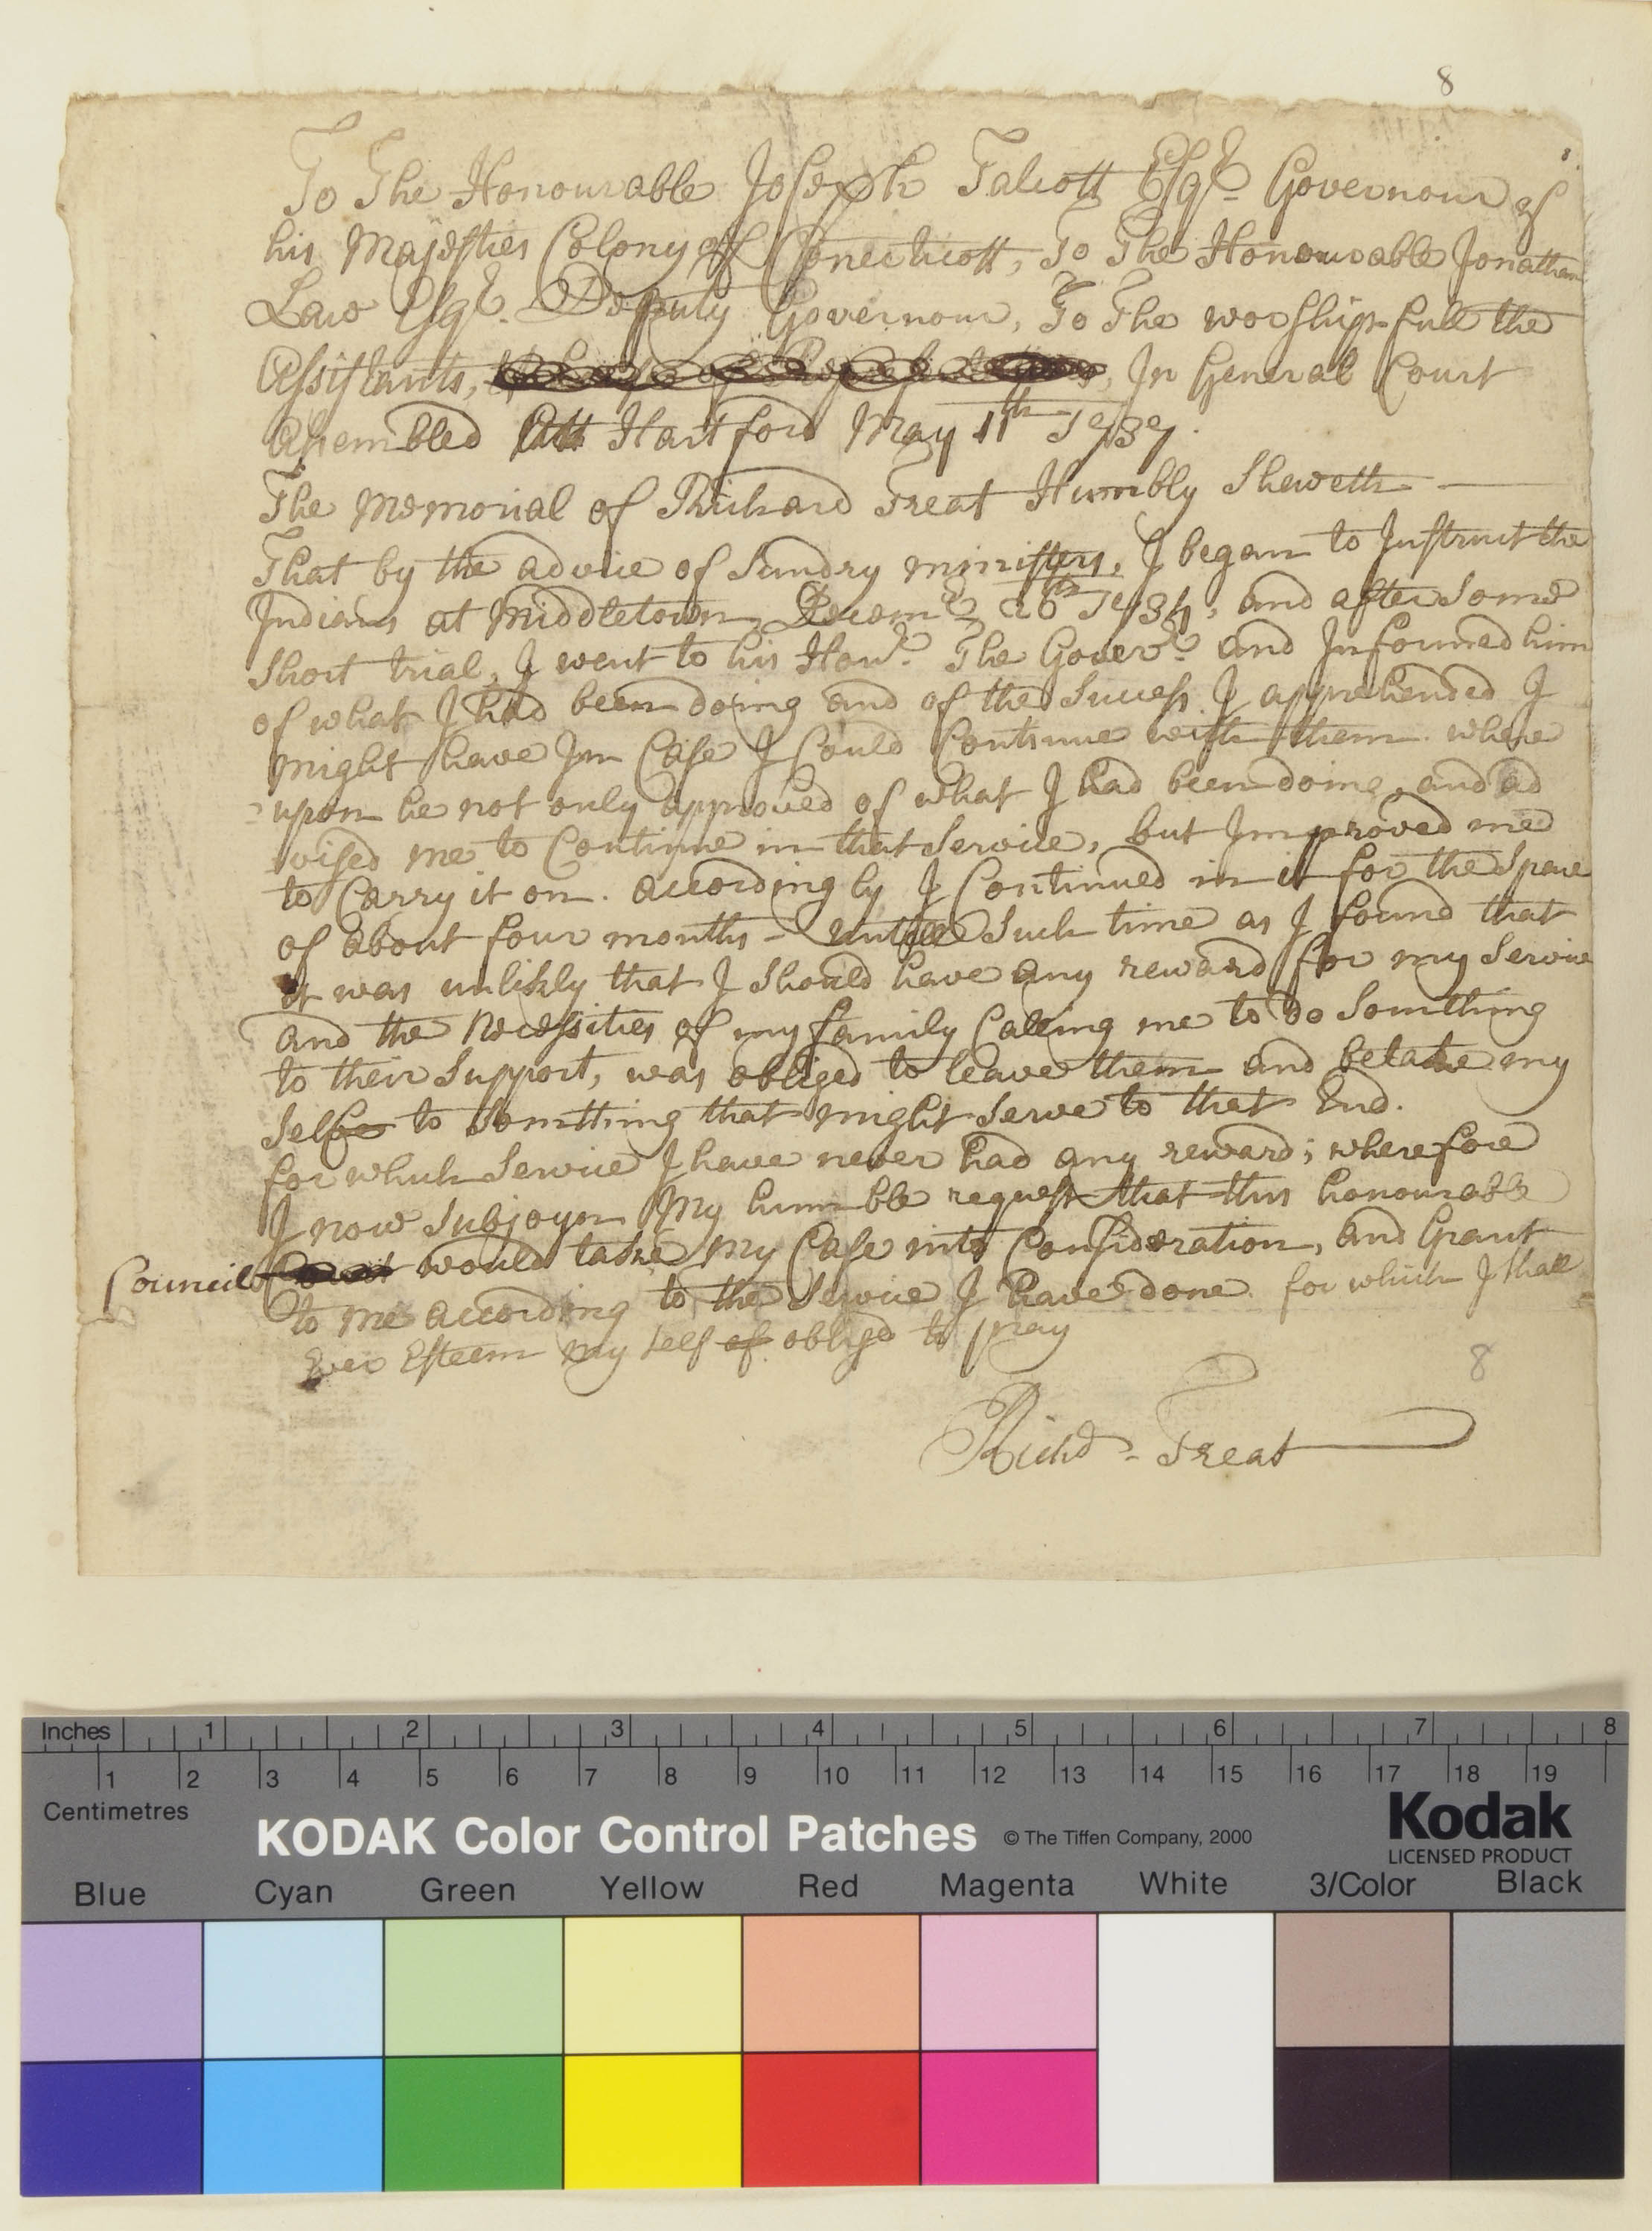 8
To The Honourable Joseph Talcott Esqr. Governour of
his Majesties Colony of Conecticott, To The Honourable Jonathan
Law Esqr. Deputy Governour, To The worshipfull the
Assistants, In General Court
Assembled Att Hartford May 11th 1737.
The Memorial of Richard Treat Humbly Sheweth —
That by the advice of Sundry ministers, I began to Instruct the
Indians at Middletown, Decemr. 26th 1734, and after Some
Short trial, I went to his Honr. The Goverr. and Informed him
of what I had been doing and of the Success I apprehended I
might have Jn Case I Could Continue with them. where
upon he not only approved of what I had been doing, and ad
vised me to Continue in that Service, but Improved me
to Carry it on. accordingly I Continued in it for the Space
of about four months - untill Such time as I found that
it was unlikly that I Should have any reward for my Service
and the Necessities of my family Calling me to do Somthing
to their Support, was obliged to leave them and betake my
Selfe to Somthing that might Serve to that End.
for which Service I have never had any reward; wherefore
I now Subjoyn My humble request that this honourable
Council Court would take my Case into Consideration, and Grant
to me according to the Service I have done. for which I shall
Ever Esteem my self of obliged to pray
8
Richd. Treat
Inches 1 2 3 4 5 6 7 8
1 2 3 4 5 6 7 8 9 10 11 12 13 14 15 16 17 18 19
Centimetres
KODAK Color Control Patches © The Tiffen Company, 2000
Kodak
LICENSED PRODUCT
Blue Cyan Green Yellow Red Magenta White 3/Color Black